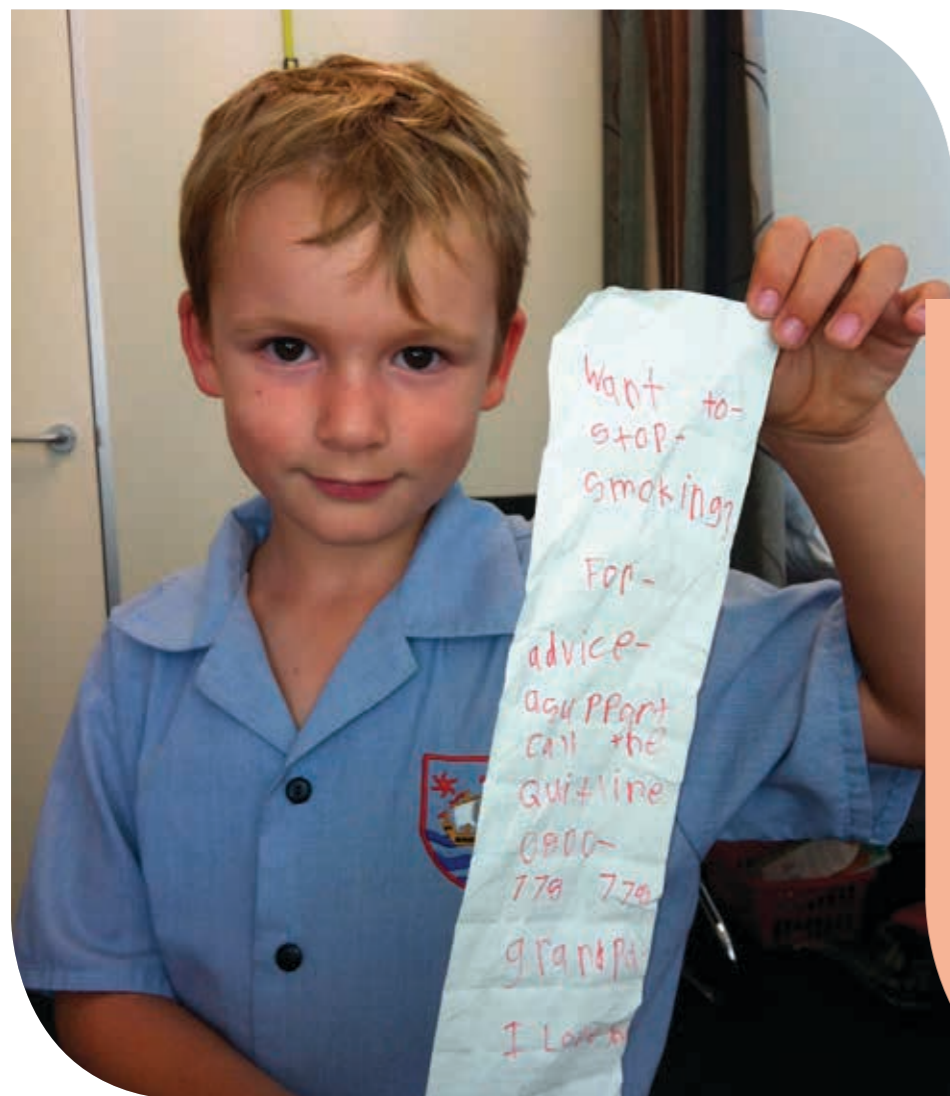 Want to-
stop-
smoking?
For-
advice-
asupport
call the
Quitline
0800-
778 778
grandpa-
I Love